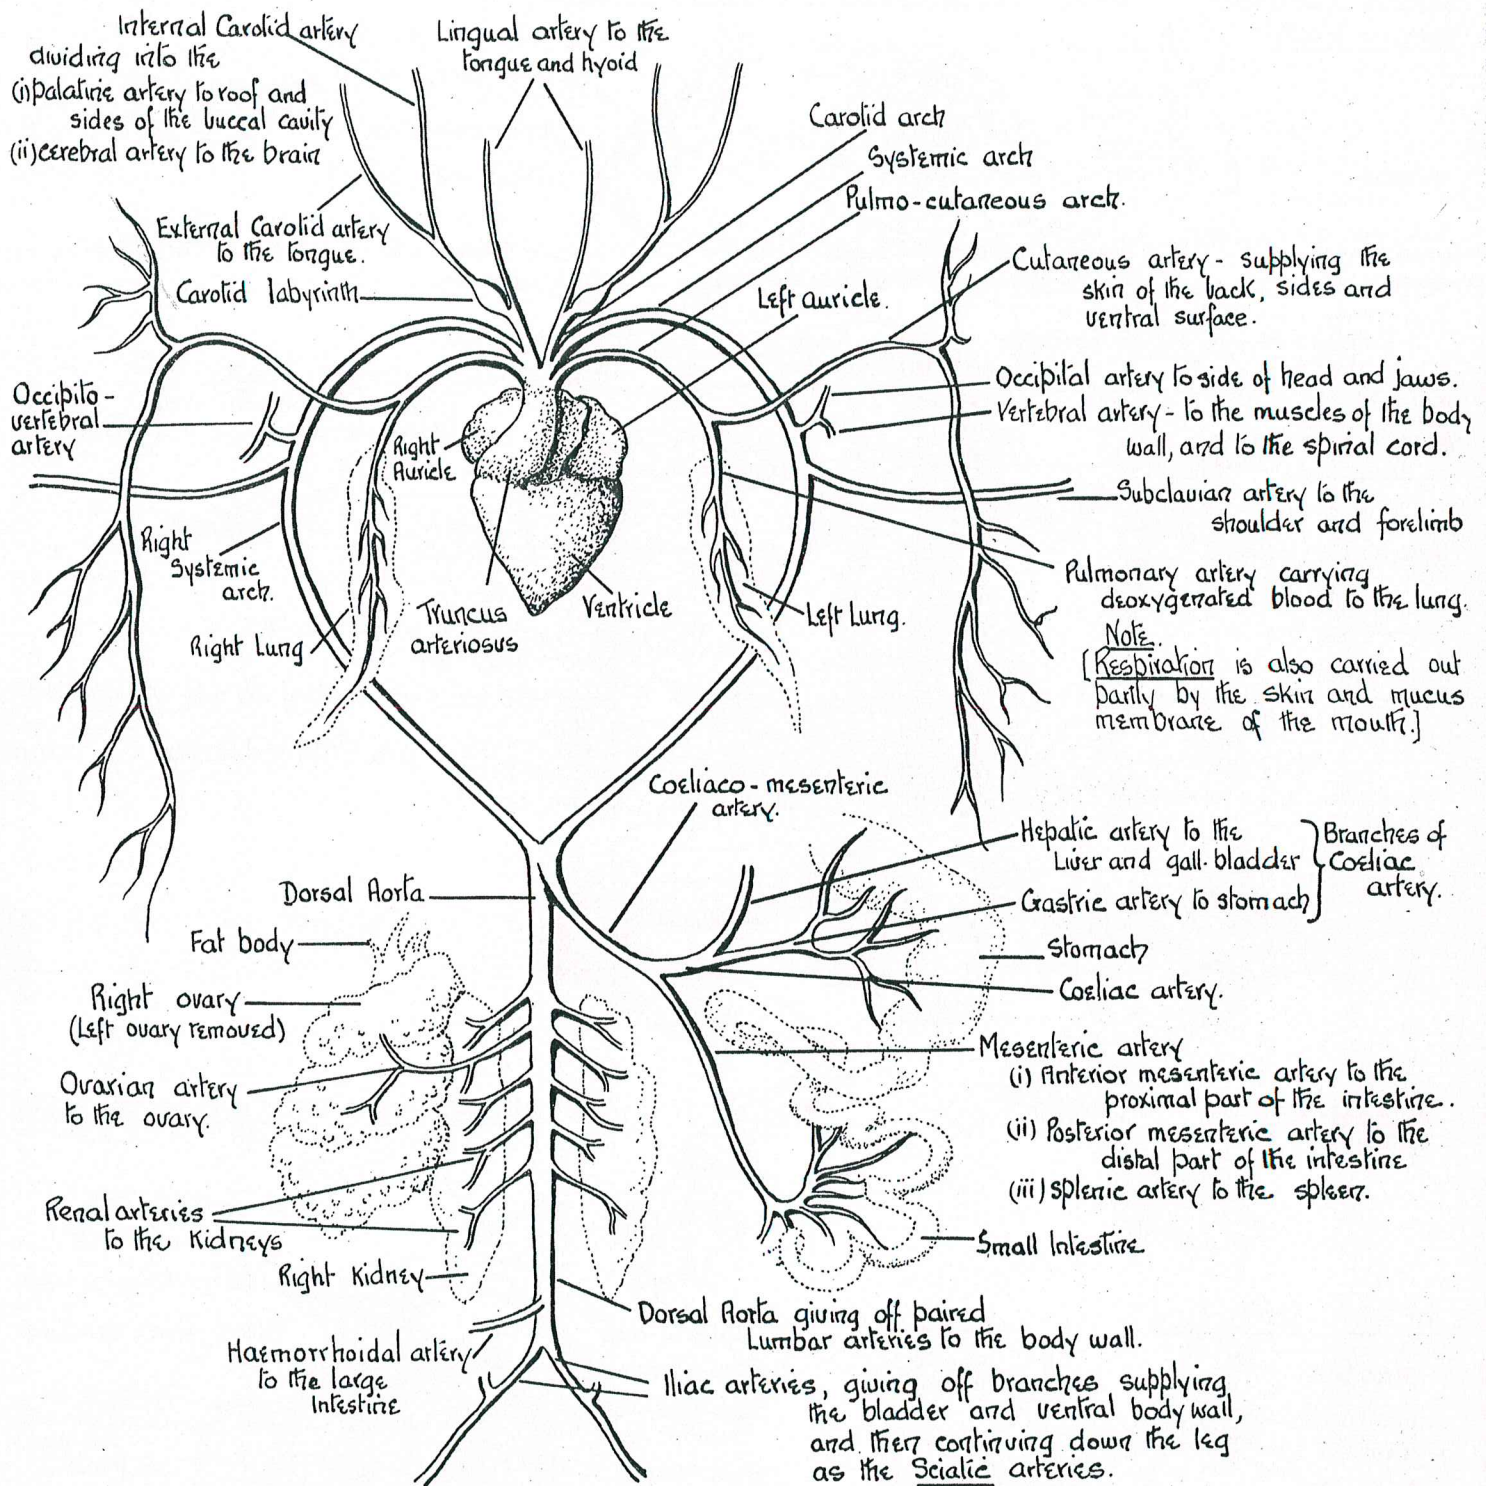 Internal Carotid artery
dividing into the
(i) palatine artery to roof and
sides of the buccal cavity
(ii) cerebral artery to the brain
Lingual artery to the
tongue and hyoid
Carotid arch
Systemic arch
Pulmo-cutaneous arch.
External Carotid artery
to the tongue.
Carotid labyrinth
Left auricle.
Cutaneous artery - supplying the
skin of the back, sides and
ventral surface.
Occipito-
vertebral
artery
Right
Auricle
Occipital artery to side of head and jaws.
Vertebral artery - to the muscles of the body
wall, and to the spinal cord.
Subclavian artery to the
shoulder and forelimb
Right
Systemic
arch.
Right Lung
Truncus
arteriosus
Ventricle
Left Lung.
Pulmonary artery carrying
deoxygenated blood to the lung.
Note.
[Respiration is also carried out
partly by the skin and mucus
membrane of the mouth.]
Coeliaco-mesenteric
artery.
Hepatic artery to the
Liver and gall-bladder
Gastric artery to stomach
Branches of
Coeliac
artery.
Dorsal Aorta
Fat body
Stomach
Right ovary
(Left ovary removed)
Coeliac artery.
Ovarian artery
to the ovary.
Mesenteric artery
(i) Anterior mesenteric artery to the
proximal part of the intestine.
(ii) Posterior mesenteric artery to the
distal part of the intestine
(iii) splenic artery to the spleen.
Renal arteries
to the Kidneys
Right Kidney
Small Intestine
Dorsal Aorta giving off paired
Lumbar arteries to the body wall.
Haemorrhoidal artery
to the large
Intestine
Iliac arteries, giving off branches supplying
the bladder and ventral body wall,
and then continuing down the leg
as the Sciatic arteries.